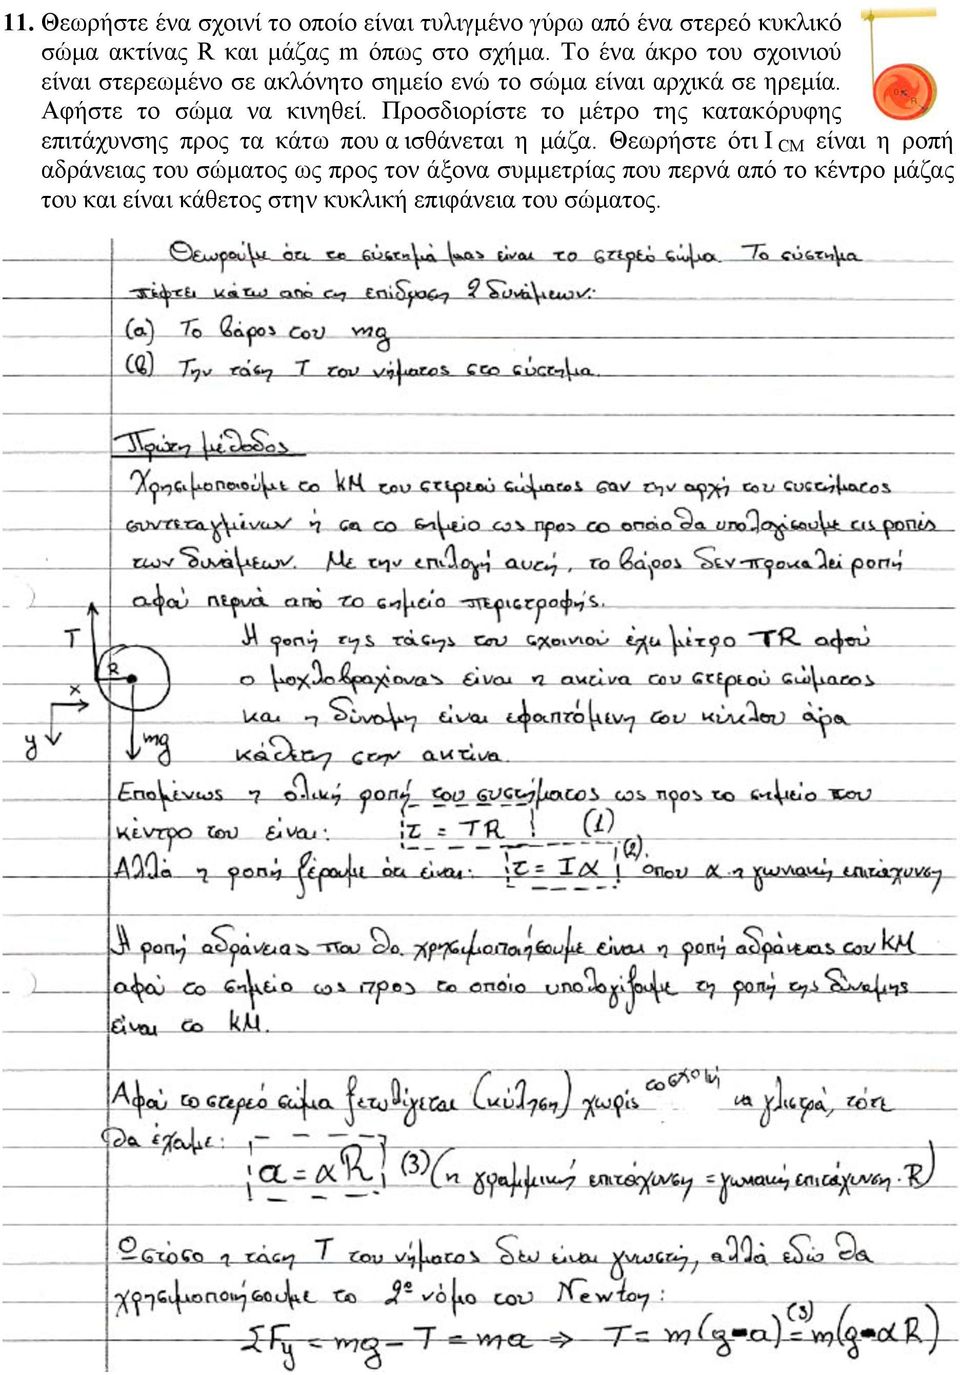 11. Θεωρήστε ένα σχοινί το οποίο είναι τυλιγμένο γύρω από ένα στερεό κυκλικό
σώμα ακτίνας R και μάζας m όπως στο σχήμα. Το ένα άκρο του σχοινιού
είναι στερεωμένο σε ακλόνητο σημείο ενώ το σώμα είναι αρχικά σε ηρεμία.
Αφήστε το σώμα να κινηθεί. Προσδιορίστε το μέτρο της κατακόρυφης
επιτάχυνσης προς τα κάτω που αισθάνεται η μάζα. Θεωρήστε ότι I CM είναι η ροπή
αδράνειας του σώματος ως προς τον άξονα συμμετρίας που περνά από το κέντρο μάζας
του και είναι κάθετος στην κυκλική επιφάνεια του σώματος.
R
Θεωρούμε ότι το σύστημά μας είναι το στερεό σώμα. Το σύστημα
πέφτει κάτω από τη επίδραση 2 δυνάμεων:
(α) Το βάρος του mg
(β) Την τάση T του νήματος στο σύστημα.
Πρώτη μέθοδος
Χρησιμοποιούμε το ΚΜ του στερεού σώματος σαν την αρχή του συστήματος
συντεταγμένων ή σα το σημείο ως προς το οποίο θα υπολογίσουμε τις ροπές
των δυνάμεων. Με την επιλογή αυτή, το βάρος δεν προκαλεί ροπή
αφού περνά από το σημείο περιστροφής.
Η ροπή της τάσης του σχοινιού έχει μέτρο TR αφού
ο μοχλοβραχίονας είναι η ακτίνα του στερεού σώματος
και η δύναμη είναι εφαπτόμενη του κύκλου άρα
κάθετη στην ακτίνα.
T
R
x
y
mg
Επομένως η ολική ροπή του συστήματος ως προς το σημείο του
κέντρο του είναι: τ = TR (1)
Αλλά η ροπή ξέρουμε ότι είναι: τ = Iα (2) όπου α η γωνιακή επιτάχυνση
Η ροπή αδράνειας που θα χρησιμοποιήσουμε είναι η ροπή αδράνειας του ΚΜ
αφού το σημείο ως προς το οποίο υπολογίζουμε τη ροπή της δύναμης
είναι το ΚΜ.
Αφού το στερεό σώμα ξετυλίγεται (κύληση) χωρίς το σχοινί να γλιστρά, τότε
θα έχουμε: a = αR (3) (η γραμμική επιτάχυνση = γωνιακή επιτάχυνση · R)
Ωστόσο η τάση T του νήματος δεν είναι γνωστή, αλλά εδώ θα
χρησιμοποιήσουμε το 2º νόμο του Newton:
ΣFy = mg - T = ma ⇒ T = m(g-a) (3)= m(g-αR)